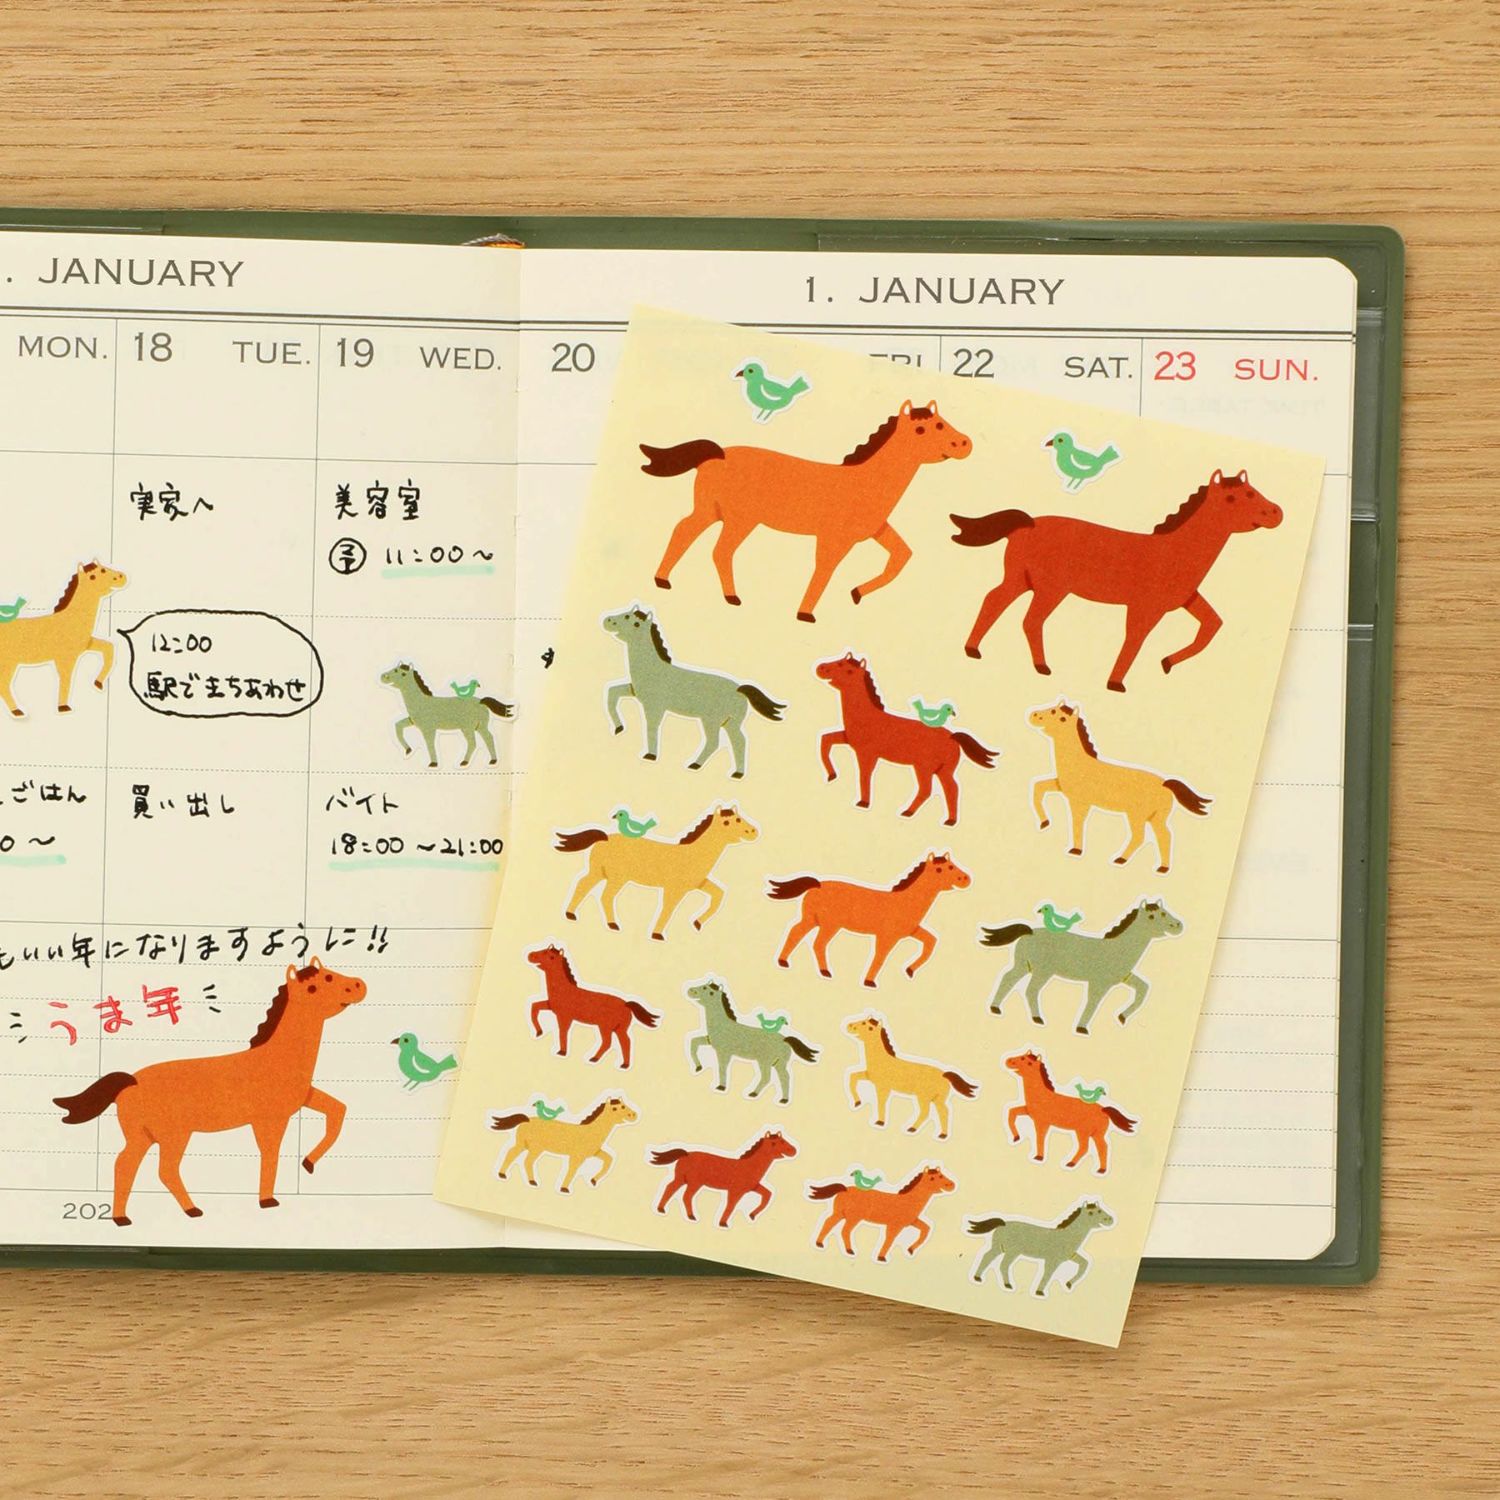 . JANUARY
1. JANUARY
MON. 18 TUE. 19 WED. 20 FRI 22 SAT. 23 SUN.
実家へ
美容室
予 11:00～
12:00
駅でまちあわせ
ごはん
0～
買い出し
バイト
18:00～21:00
もいい年になりますように!!
うま年
202